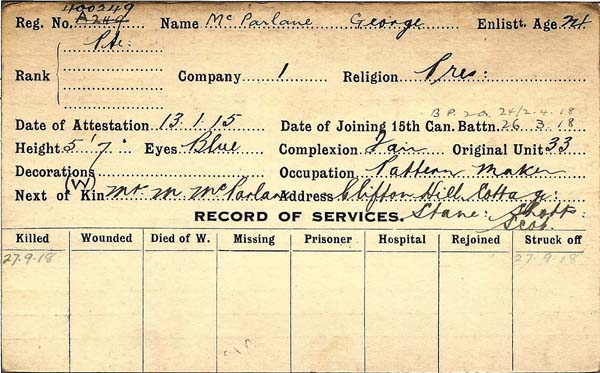 400249
Reg. No. A249 Name McParlane George Enlistt. Age 21
Pte:
Rank Company 1 Religion Pres:
B.P. 2a. 24/2.4.18
Date of Attestation 13.1.15 Date of Joining 15th Can. Battn. 26.3.18
Height 5' 7" Eyes Blue Complexion Fair Original Unit 33
Decorations Occupation Pattern Maker
(W)
Next of Kin Mr. M. McParlane Address Clifton Hill Cottage:
RECORD OF SERVICES. Stane: Shotts:
Scot.
Killed Wounded Died of W. Missing Prisoner Hospital Rejoined Struck off
27.9.18 27.9.18